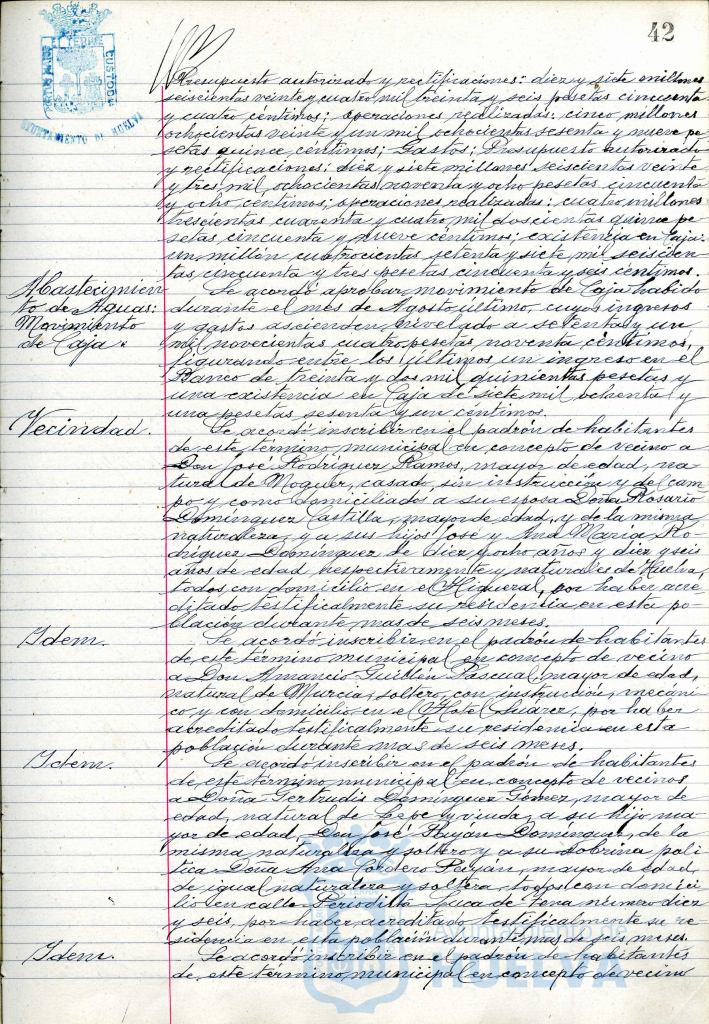 42
PORTUS MARIS ET TERRE CUSTODIA
AYUNTAMIENTO DE HUELVA
Presupuesto autorizado y rectificaciones: diez y siete millones
seiscientas veinte y cuatro mil treinta y seis pesetas cincuenta
y cuatro céntimos; operaciones realizadas: cinco millones
ochocientas veinte y un mil ochocientas sesenta y nueve pe-
setas quince céntimos; Gastos: Presupuesto autorizado
y rectificaciones: diez y siete millones seiscientas veinte
y tres mil, ochocientas noventa y ocho pesetas cincuenta
y ocho céntimos; operaciones realizadas: cuatro millones
trescientas cuarenta y cuatro mil doscientas quince pe-
setas, cincuenta y nueve céntimos; existencia en Caja:
un millón cuatrocientas setenta y siete mil seiscien-
tas cincuenta y tres pesetas cincuenta y seis céntimos.
Abastecimien-
to de Aguas:
Movimiento
de Caja.
Se acordó aprobar, movimiento de Caja habido
durante el mes de Agosto último, cuyos ingresos
y gastos ascienden, nivelado a setenta y un
mil novecientas cuatro pesetas noventa céntimos,
figurando entre los últimos un ingreso en el
Banco de treinta y dos mil quinientas pesetas y
una existencia en Caja de siete mil ochenta y
una pesetas sesenta y un céntimos.
Vecindad.
Se acordó inscribir en el padrón de habitantes
de este término municipal en concepto de vecino a
Don José Rodríguez Ramos, mayor de edad, na-
tural de Moguer, casado, sin instrucción y del cam-
po y como domiciliados a su esposa Doña Rosario
Domínguez Castilla, mayor de edad, y de la misma
naturaleza y a sus hijos José y Ana María Ro-
dríguez Domínguez de diez y ocho años y diez y seis
años de edad, respectivamente y naturales de Huelva,
todos con domicilio en el Higueral, por haber acre-
ditado testificalmente su residencia en esta po-
blación durante mas de seis meses.
Idem.
Se acordó inscribir en el padrón de habitantes
de este término municipal en concepto de vecino
a Don Amancio Guillén Pascual, mayor de edad,
natural de Murcia, soltero, con instrucción, mecáni-
co y con domicilio en el Hotel Suárez, por haber
acreditado testificalmente su residencia en esta
población durante mas de seis meses.
Idem.
Se acordó inscribir en el padrón de habitantes
de este término municipal en concepto de vecinos
a Doña Gertrudis Domínguez Gómez, mayor de
edad, natural de Lepe y viuda, a su hijo ma-
yor de edad, Don José Domínguez, de la
misma naturaleza y soltero y a su sobrina polí-
tica Doña Ana Cordero mayor de edad,
de igual naturaleza y soltera, todos con domici-
lio en calle Periodista Luca de Tena número diez
y seis, por haber acreditado testificalmente su re-
sidencia en esta población durante mas de seis meses.
Idem.
Se acordó inscribir en el padrón de habitantes
de este término municipal en concepto de vecino
Ayuntamiento de
HUELVA